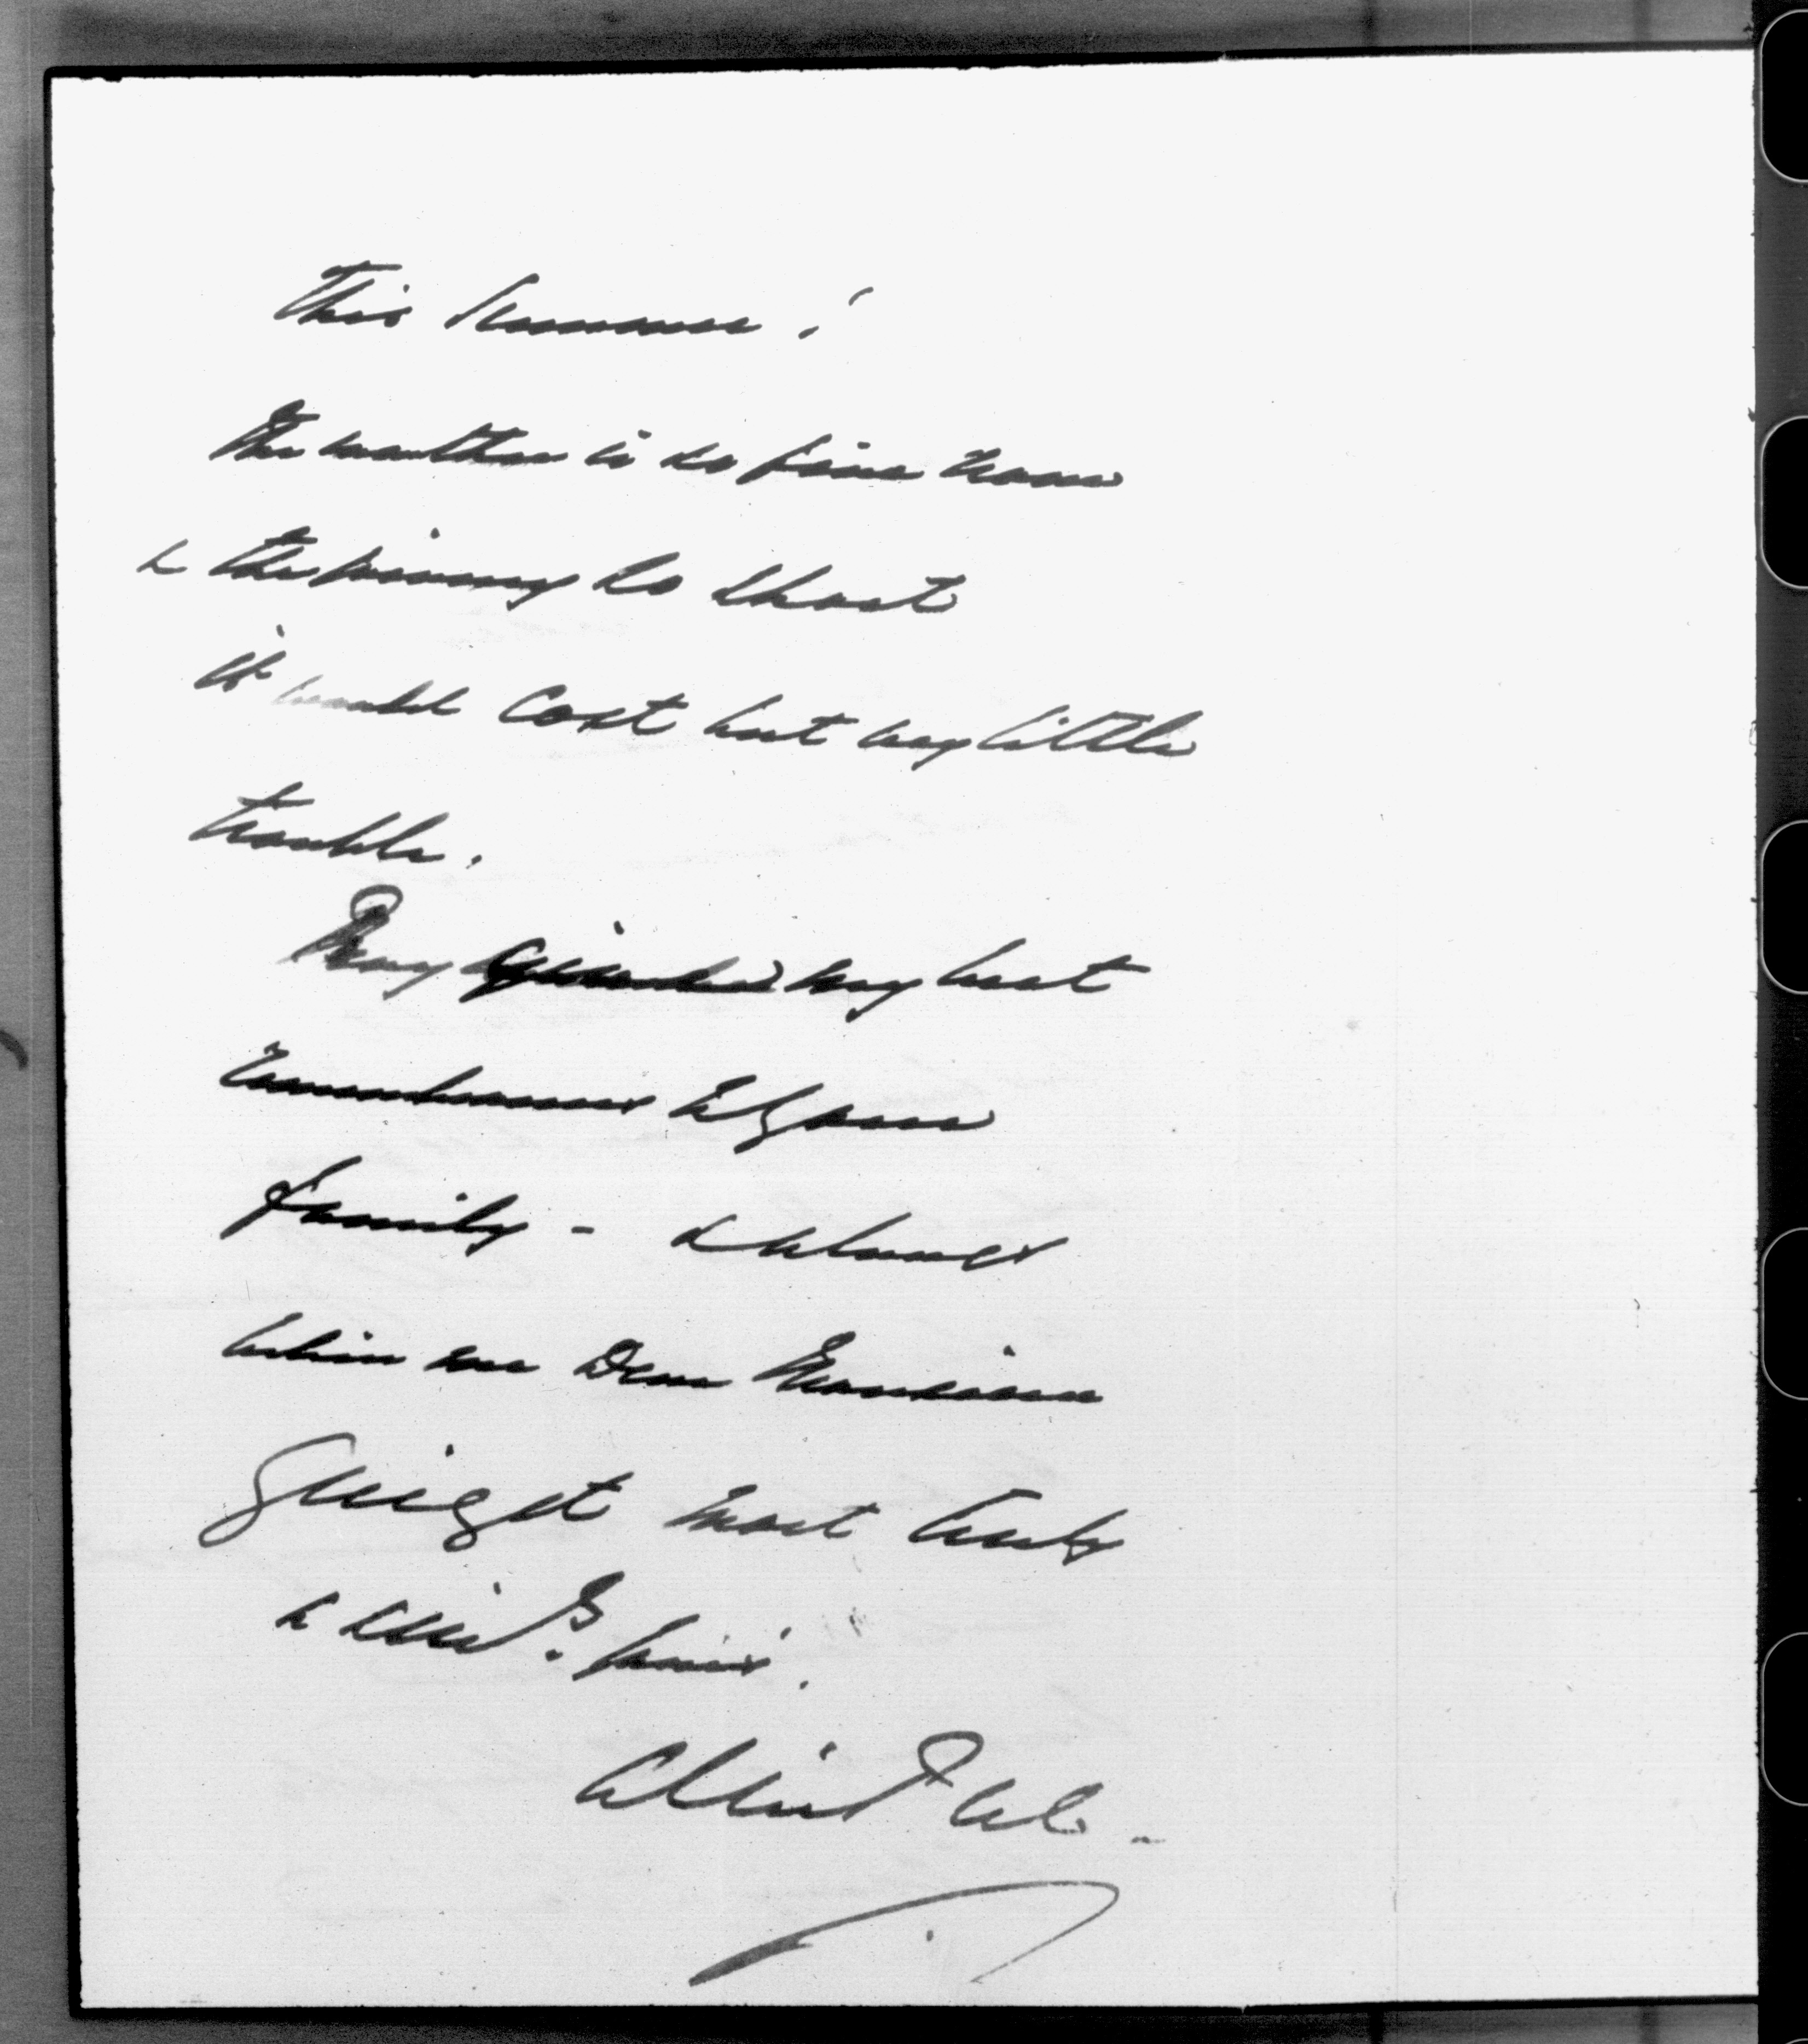 this summer!
The weather is so fine now
& the journey so short
it would cost but very little
trouble.
Pray give my best
remembrances to your
family - & always
believe me Dear Monsieur
most truly
&
Albert